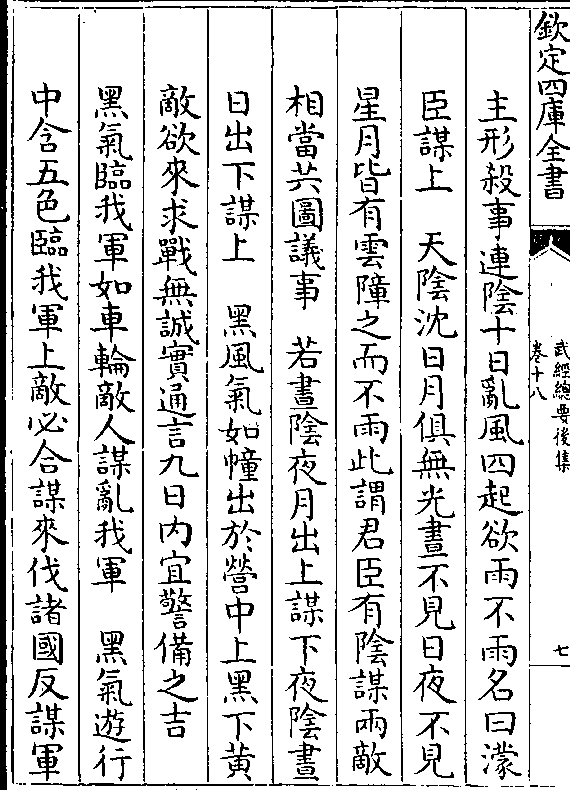 欽定四庫全書
武經總要後集
卷十八
七
主形殺事連陰十日亂風四起欲雨不雨名曰濛
臣謀上　天陰沈日月俱無光晝不見日夜不見
星月皆有雲障之而不雨此謂君臣有陰謀兩敵
相當共圖議事　若晝陰夜月出上謀下夜陰晝
日出下謀上　黑風氣如幢出於營中上黑下黄
敵欲來求戰無誠實通言九日内宜警備之吉
黑氣臨我軍如車輪敵人謀亂我軍　黑氣遊行
中含五色臨我軍上敵必合謀來伐諸國反謀軍